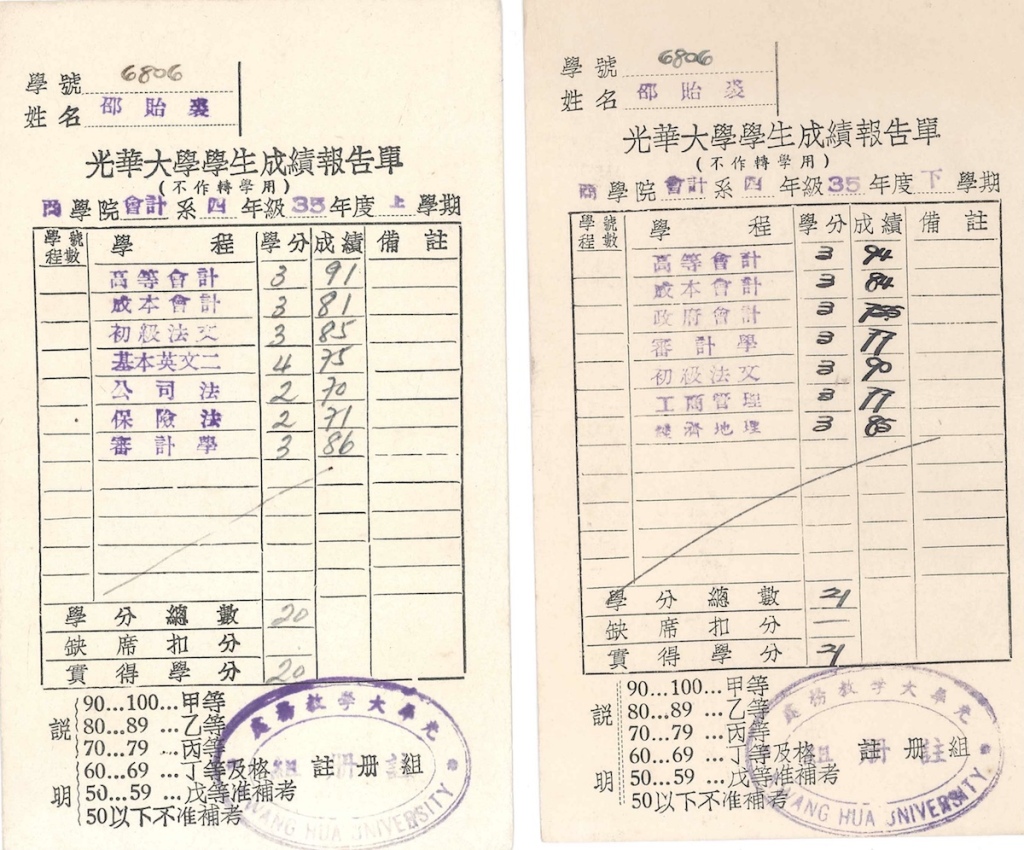 學號 6806
姓名 邵貽裘
光華大學學生成績報告單
(不作轉學用)
商學院會計系四年級35年度上學期
學程號數 學程 學分 成績 備註
高等會計 3 91
成本會計 3 81
初級法文 3 85
基本英文二 4 75
公司法 2 70
保險法 2 71
審計學 3 86
學分總數 20
缺席扣分
實得學分 20
說明
90...100...甲等
80...89 ...乙等
70...79 ...丙等
60...69 ...丁等及格
50...59 ...戊等准補考
50以下不准補考
註册組
光華大學教務處
KWANG HUA UNIVERSITY
學號 6806
姓名 邵貽裘
光華大學學生成績報告單
(不作轉學用)
商學院會計系四年級35年度下學期
學程號數 學程 學分 成績 備註
高等會計 3 94
成本會計 3 84
政府會計 3
審計學 3 77
初級法文 3 90
工商管理 3 77
經濟地理 3 85
學分總數 21
缺席扣分 —
實得學分 21
說明
90...100...甲等
80...89 ...乙等
70...79 ...丙等
60...69 ...丁等及格
50...59 ...戊等准補考
50以下不准補考
註册組
光華大學教務處
KWANG HUA UNIVERSITY